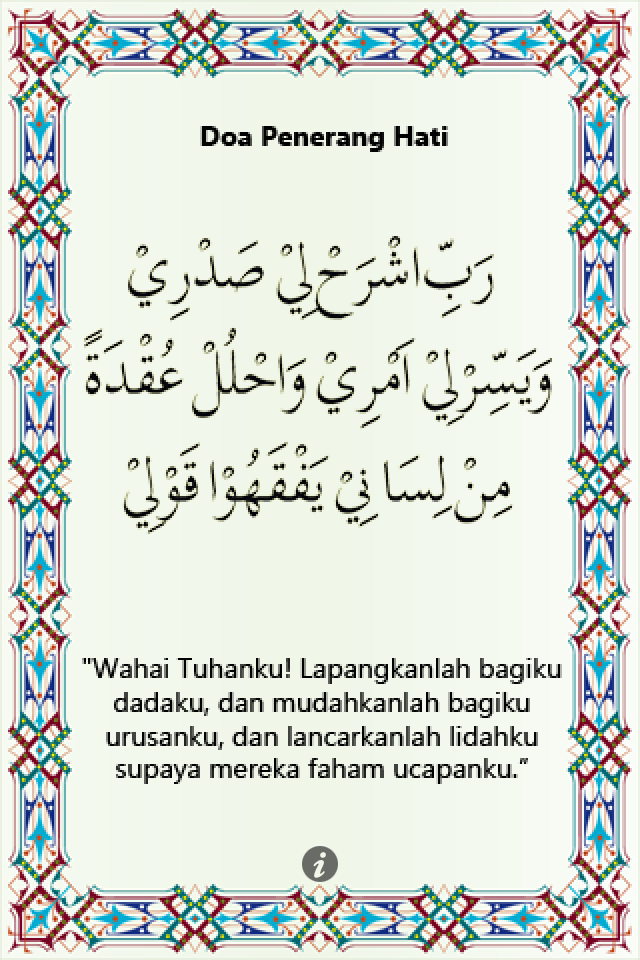 Doa Penerang Hati
رَبِّ اشْرَحْ لِيْ صَدْرِيْ
وَيَسِّرْلِيْ اَمْرِيْ وَاحْلُلْ عُقْدَةً
مِنْ لِسَا نِيْ يَفْقَهُوْا قَوْلِيْ
"Wahai Tuhanku! Lapangkanlah bagiku
dadaku, dan mudahkanlah bagiku
urusanku, dan lancarkanlah lidahku
supaya mereka faham ucapanku.”
i